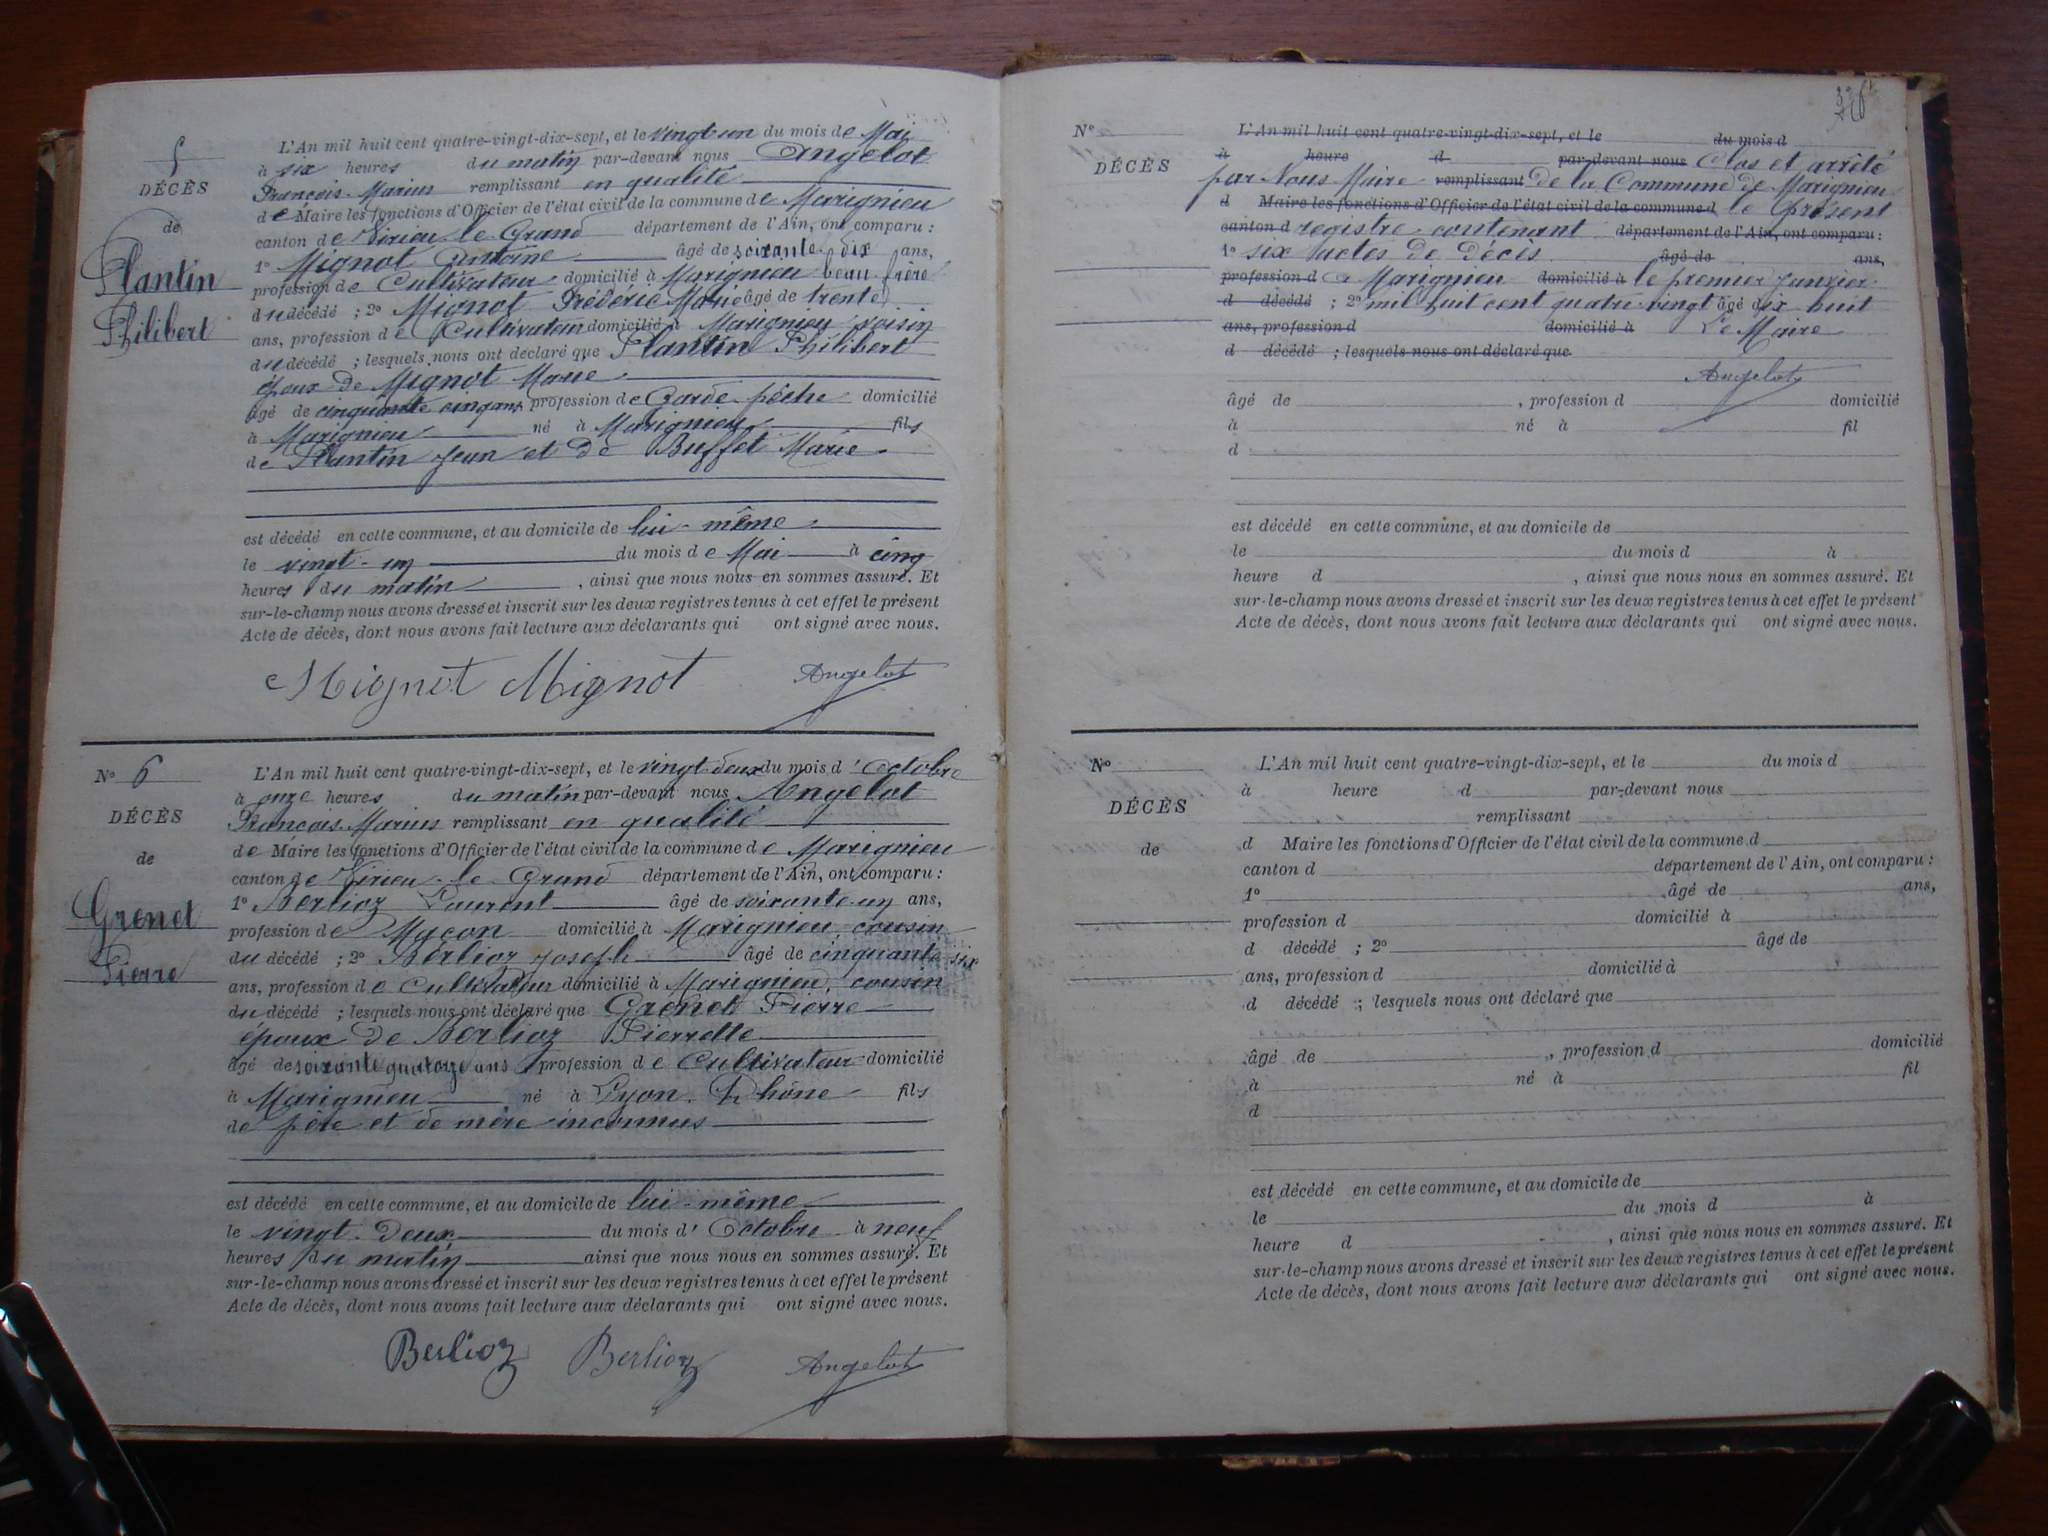 5
DÉCÈS
de
Plantin
Philibert
L'An mil huit cent quatre-vingt-dix-sept, et le vingt un du mois de Mai
à six heures du matin par-devant nous Angelot
François Marius remplissant en qualité
de Maire les fonctions d'Officier de l'état civil de la commune de Marignieu
canton de Virieu-le-Grand département de l'Ain, ont comparu :
1º Mignot Antoine âgé de soixante-dix ans,
profession de Cultivateur domicilié à Marignieu beau-frère
du décédé ; 2º Mignot Frédéric Marie âgé de trente
ans, profession de Cultivateur domicilié à Marignieu voisin
du décédé ; lesquels nous ont déclaré que Plantin Philibert
époux de Mignot Marie
âgé de cinquante cinq ans profession de Garde-pêche domicilié
à Marignieu né à Marignieu fils
de Plantin Jean et de Buffet Marie
est décédé en cette commune, et au domicile de lui-même
le vingt-un du mois de Mai à cinq
heures du matin, ainsi que nous nous en sommes assuré. Et
sur-le-champ nous avons dressé et inscrit sur les deux registres tenus à cet effet le présent
Acte de décès, dont nous avons fait lecture aux déclarants qui ont signé avec nous.
Mignot Mignot Angelot
Nº 6
DÉCÈS
de
Grenet
Pierre
L'An mil huit cent quatre-vingt-dix-sept, et le vingt deux du mois d'Octobre
à onze heures du matin par-devant nous Angelot
François Marius remplissant en qualité
de Maire les fonctions d'Officier de l'état civil de la commune de Marignieu
canton de Virieu-le-Grand département de l'Ain, ont comparu :
1º Berlioz Laurent âgé de soixante-un ans,
profession de Maçon domicilié à Marignieu, cousin
du décédé ; 2º Berlioz Joseph âgé de cinquante six
ans, profession de Cultivateur domicilié à Marignieu, cousin
du décédé ; lesquels nous ont déclaré que Grenet Pierre
époux de Berlioz Pierrette
âgé de soixante quatorze ans profession de Cultivateur domicilié
à Marignieu né à Lyon, Rhône fils
de père et de mère inconnus
est décédé en cette commune, et au domicile de lui-même
le vingt-deux du mois d'Octobre à neuf
heures du matin ainsi que nous nous en sommes assuré. Et
sur-le-champ nous avons dressé et inscrit sur les deux registres tenus à cet effet le présent
Acte de décès, dont nous avons fait lecture aux déclarants qui ont signé avec nous.
Berlioz Berlioz Angelot
Nº
DÉCÈS
L'An mil huit cent quatre-vingt-dix-sept, et le du mois d
à heure d par-devant nous Clos et arrêté
par Nous Maire remplissant de la Commune de Marignieu
d Maire les fonctions d'Officier de l'état civil de la commune d le présent
canton d registre contenant département de l'Ain, ont comparu :
1º six actes de décès âgé de ans,
profession d à Marignieu domicilié à le premier Janvier
d décédé ; 2º mil huit cent quatre-vingt âgé dix huit
ans, profession d domicilié à Le Maire
d décédé ; lesquels nous ont déclaré que
Angelot
âgé de , profession d domicilié
à né à fil
d
est décédé en cette commune, et au domicile de
le du mois d à
heure d , ainsi que nous nous en sommes assuré. Et
sur-le-champ nous avons dressé et inscrit sur les deux registres tenus à cet effet le présent
Acte de décès, dont nous avons fait lecture aux déclarants qui ont signé avec nous.
Nº
DÉCÈS
de
L'An mil huit cent quatre-vingt-dix-sept, et le du mois d
à heure d par-devant nous
remplissant
d Maire les fonctions d'Officier de l'état civil de la commune d
canton d département de l'Ain, ont comparu :
1º âgé de ans,
profession d domicilié à
d décédé ; 2º âgé de
ans, profession d domicilié à
d décédé ; lesquels nous ont déclaré que
âgé de , profession d domicilié
à né à fil
d
est décédé en cette commune, et au domicile de
le du mois d à
heure d , ainsi que nous nous en sommes assuré. Et
sur-le-champ nous avons dressé et inscrit sur les deux registres tenus à cet effet le présent
Acte de décès, dont nous avons fait lecture aux déclarants qui ont signé avec nous.